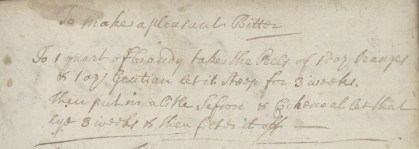 To make a pleasant Bitter
To 1 quart of brandy take the Peels of 1 doz Oranges
& 1 oz Gentian let it steep for 3 weeks.
then put in a little Safrone & Cocheneal let that
lye 3 weeks & then filter it off